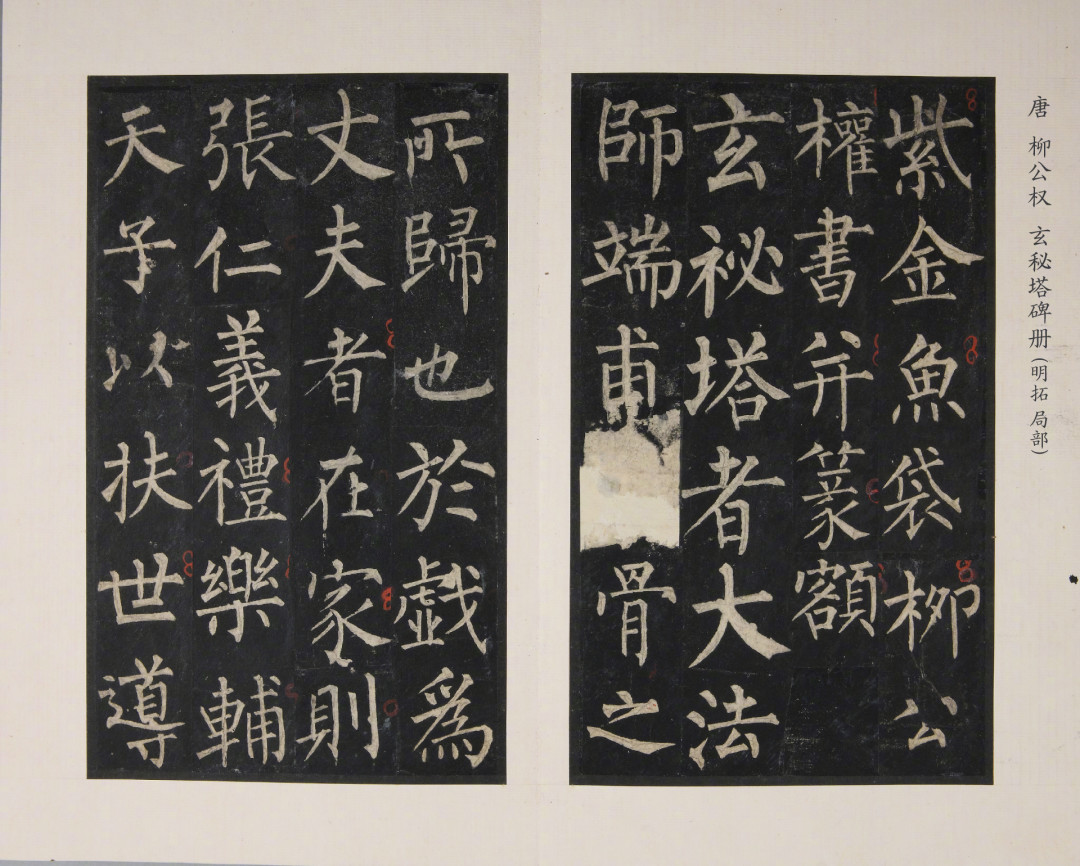 唐 柳公权 玄秘塔碑册(明拓 局部)
紫金魚袋柳公
權書并篆額
玄祕塔者大法
師端甫骨之
所歸也於戲為
丈夫者在家則
張仁義禮樂輔
天子以扶世導